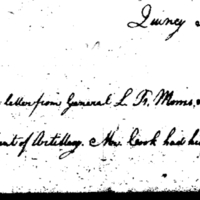 Quincy
letter from General L. Fr. Morris,
of Artillery. Mr. Cook had